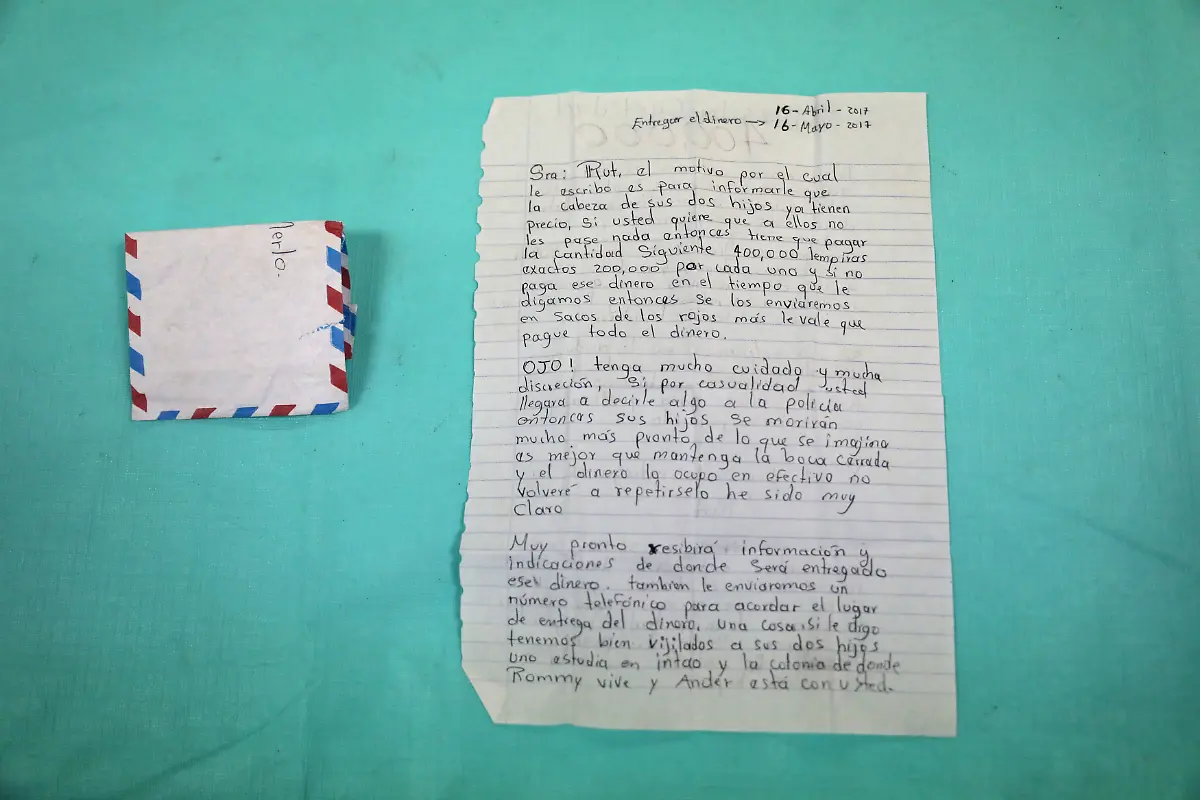 Merlo.
16-Abril-2017
Entregar el dinero → 16-Mayo-2017
400,000
Sra: Rut, el motivo por el cual
le escribo es para informarle que
la cabeza de sus dos hijos ya tienen
precio, Si usted quiere que a ellos no
les pase nada entonces tiene que pagar
la cantidad Siguiente 400,000 lempiras
exactos 200,000 por cada uno y si no
paga ese dinero en el tiempo que le
digamos entonces se los enviaremos
en sacos de los rojos más le vale que
pague todo el dinero.
OJO! tenga mucho cuidado y mucha
discreción, Si por casualidad usted
llegara a decirle algo a la policía
entonces sus hijos se morirán
mucho más pronto de lo que se imajina
es mejor que mantenga la boca cerrada
y el dinero lo ocupo en efectivo no
Volveré a repetirselo he sido muy
Claro
Muy pronto resibirá información y
indicaciones de donde Será entregado
ese dinero. tambien le enviaremos un
número telefónico para acordar el lugar
de entrega del dinero, una cosa si le digo
tenemos bien vijilados a sus dos hijos
uno estudia en intae y la colonia de donde
Rommy vive y Ander está con usted.